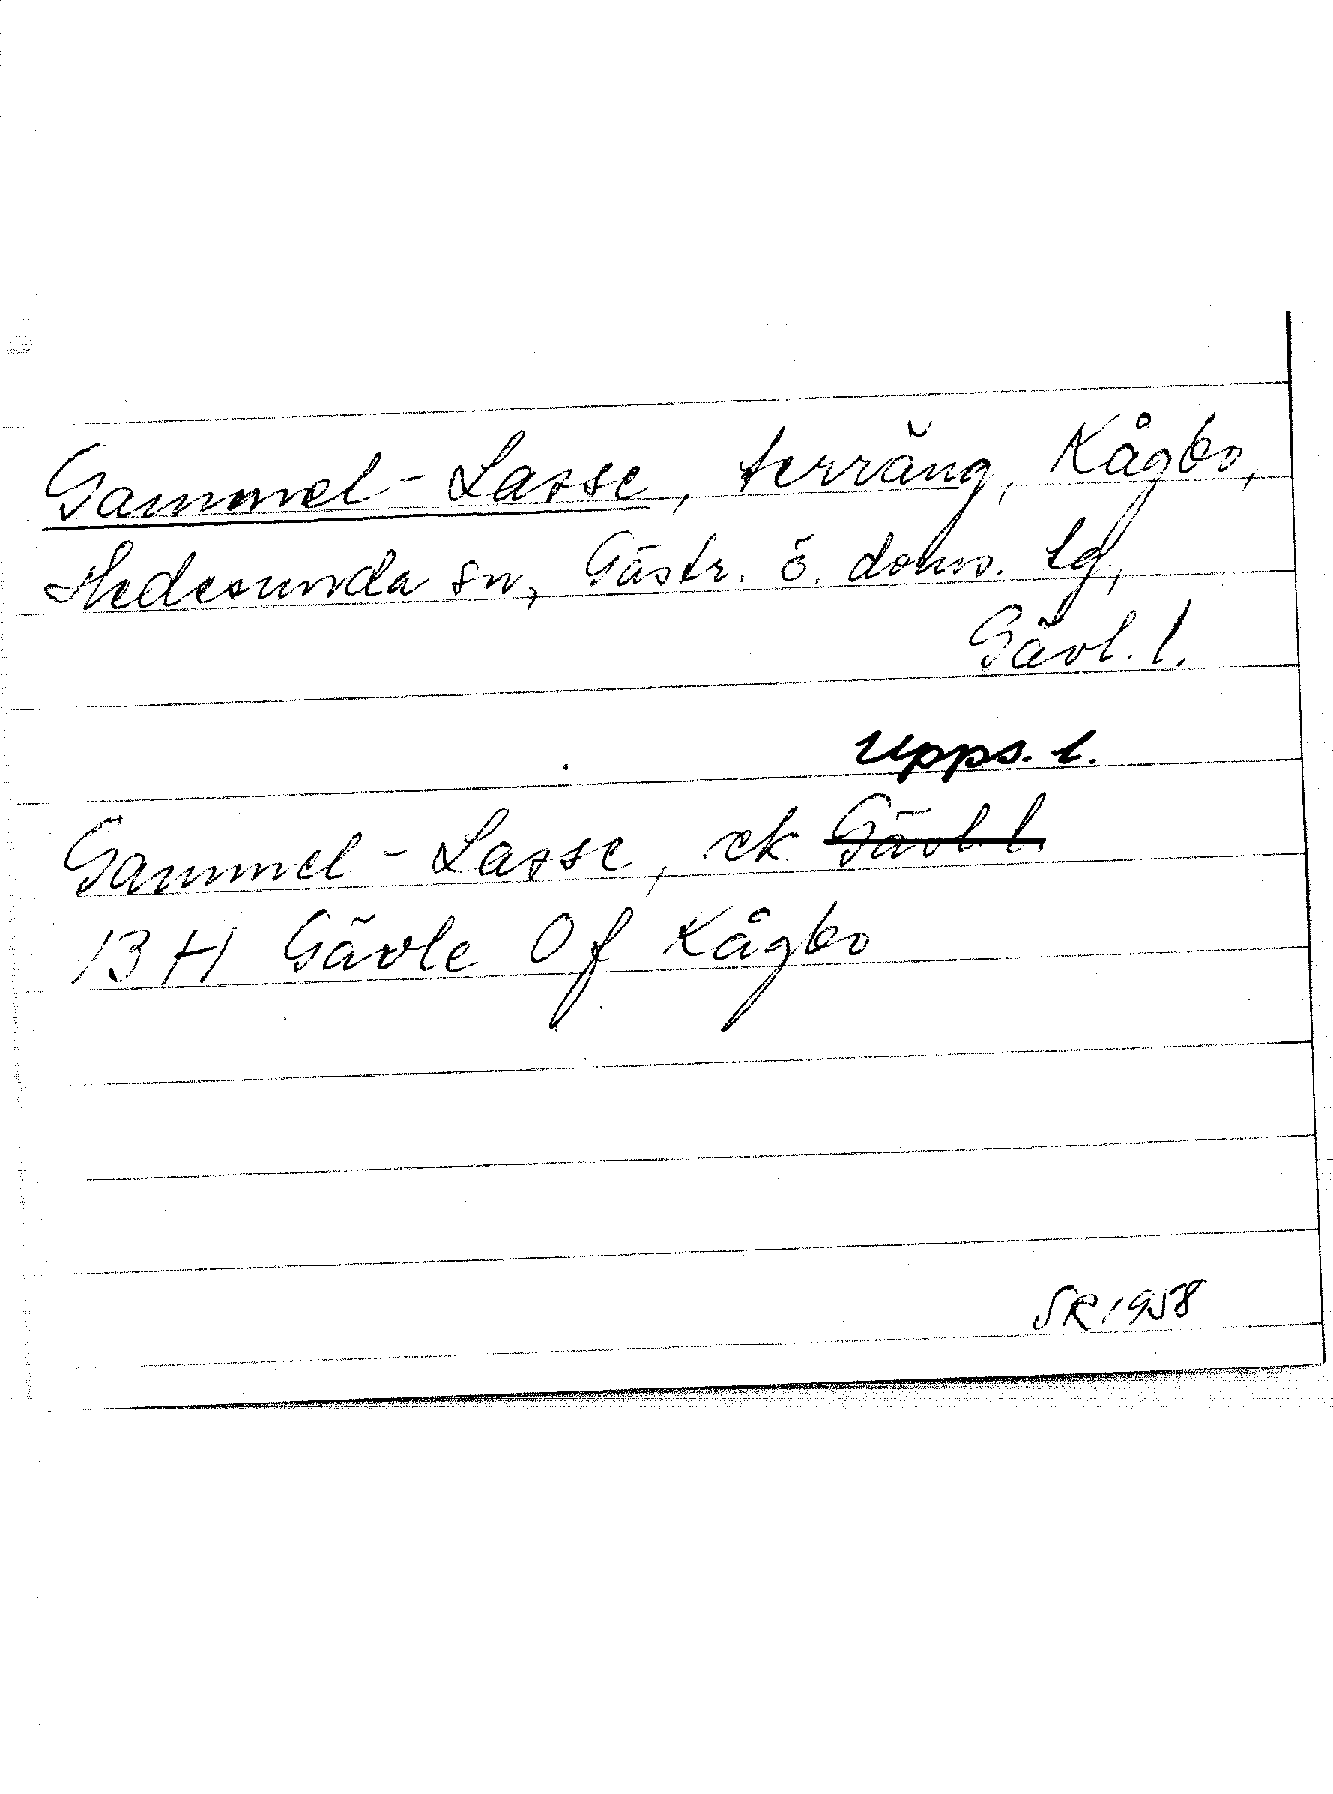 Gammel-Lasse, terräng, Kågbo,
Hedesunda sn, Gästr. ö. doms. tg,
Gävl. l.
Upps. l.
Gammel-Lasse, ek Gävl. l.
13 H Gävle 0 f Kågbo
SR 1958